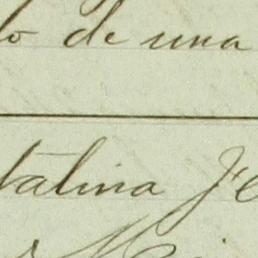 lo de una
talina Fe